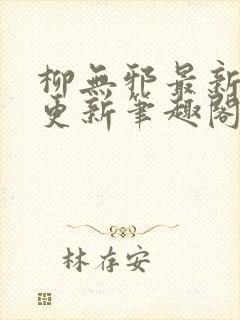 柳無邪最新
更新筆趣閣
林存安